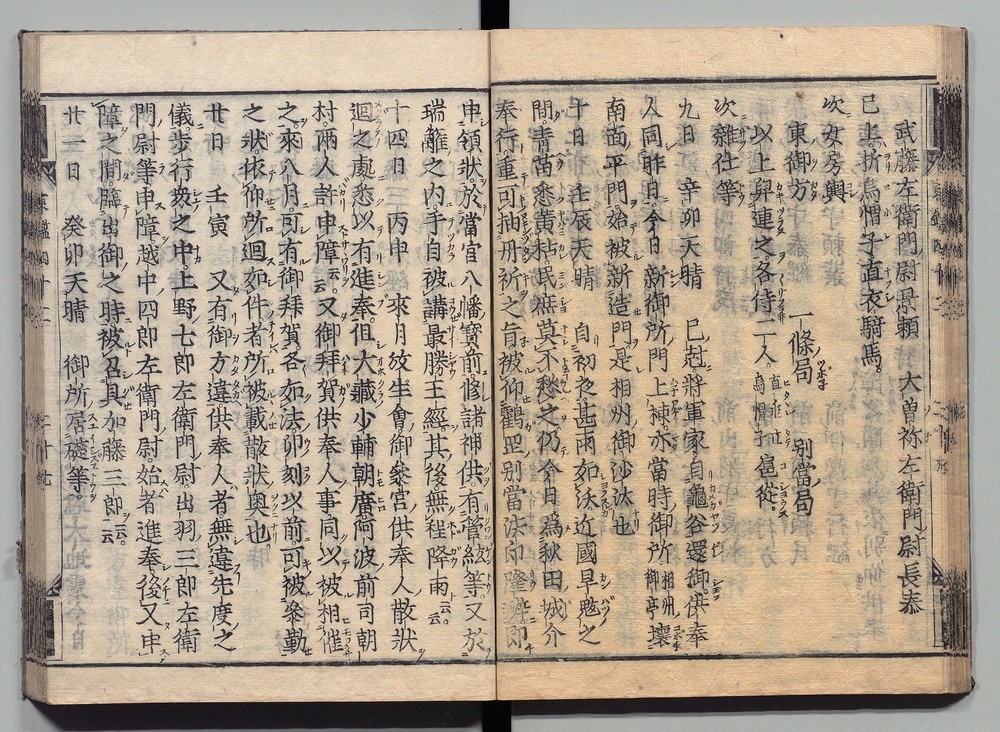 武藤左衛門尉景頼　大曽祢左衛門尉長泰
已上折烏帽子直衣騎馬。
次女房輿
東御方　一條局　別當局
以上舁連之。各侍二人。直垂立烏帽子扈從。
次雜仕等
九日　辛卯天晴　巳尅將軍家自龜谷還御。供奉
人同昨日。今日新御所門上棟。亦當時御所。相州御亭壞
南面平門始被新造門。是相州御沙汰也
十日　壬辰天晴　自初夜甚雨如沃。近國旱魃之
間。青苗悉黄枯。氓庶莫不愁之。仍今日爲秋田城介
奉行。重可抽丹祈之旨。被仰鶴岡別當法印隆辨。即
申領状。於當宮八幡寳前。修諸神供。有管絃等。又於
瑞籬之内。手自被講最勝王經。其後無程降雨云云。
十四日　丙申　來月放生會御參宮供奉人散状
迴之處。悉以有進奉。但大藏少輔朝廣。阿波前司朝
村。兩人許申障云云。又御拜賀供奉人事。同以被相催
之。來八月可有御拜賀。各如法卯刻以前可被參勤
之状。依仰所迴如件者。所被載散状奧也。
廿日　壬寅　又有御方違。供奉人者無違先度之
儀。歩行衆之中。上野七郎左衛門尉。出羽三郎左衛
門尉等申障。越中四郎左衛門尉。始者進奉。後又申
障之間。臨出御之時。被召具加藤三郎云云。
廿一日　癸卯天晴　御所